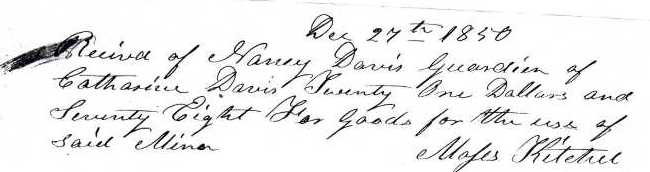 Dec 27th 1850
Recived of Nancy Davis Guardien of
Catharine Davis Twenty One Dollars and
Seventy Eight For Goods for the use of
Said Minor Moses Kitchel